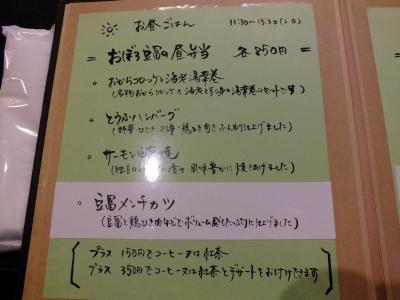 お昼ごはん 11:30〜13:30(L.O)
= おぼろ豆冨の昼弁当 各850円 =
・おからコロッケと海老湯葉巻
(名物おからコロッケと海老とすり身の湯葉巻のセットです)
・とうふハンバーグ
(野菜・ひじき・鶏ひき肉でふんわり仕上げました)
・サーモン
(独自の 風味豊かに焼きあげました)
・豆冨メンチカツ
(豆冨と鶏ひき肉などでボリューム感たっぷりに仕上げました)
プラス 150円でコーヒー又は紅茶
プラス 350円でコーヒー又は紅茶とデザートをお付けできます